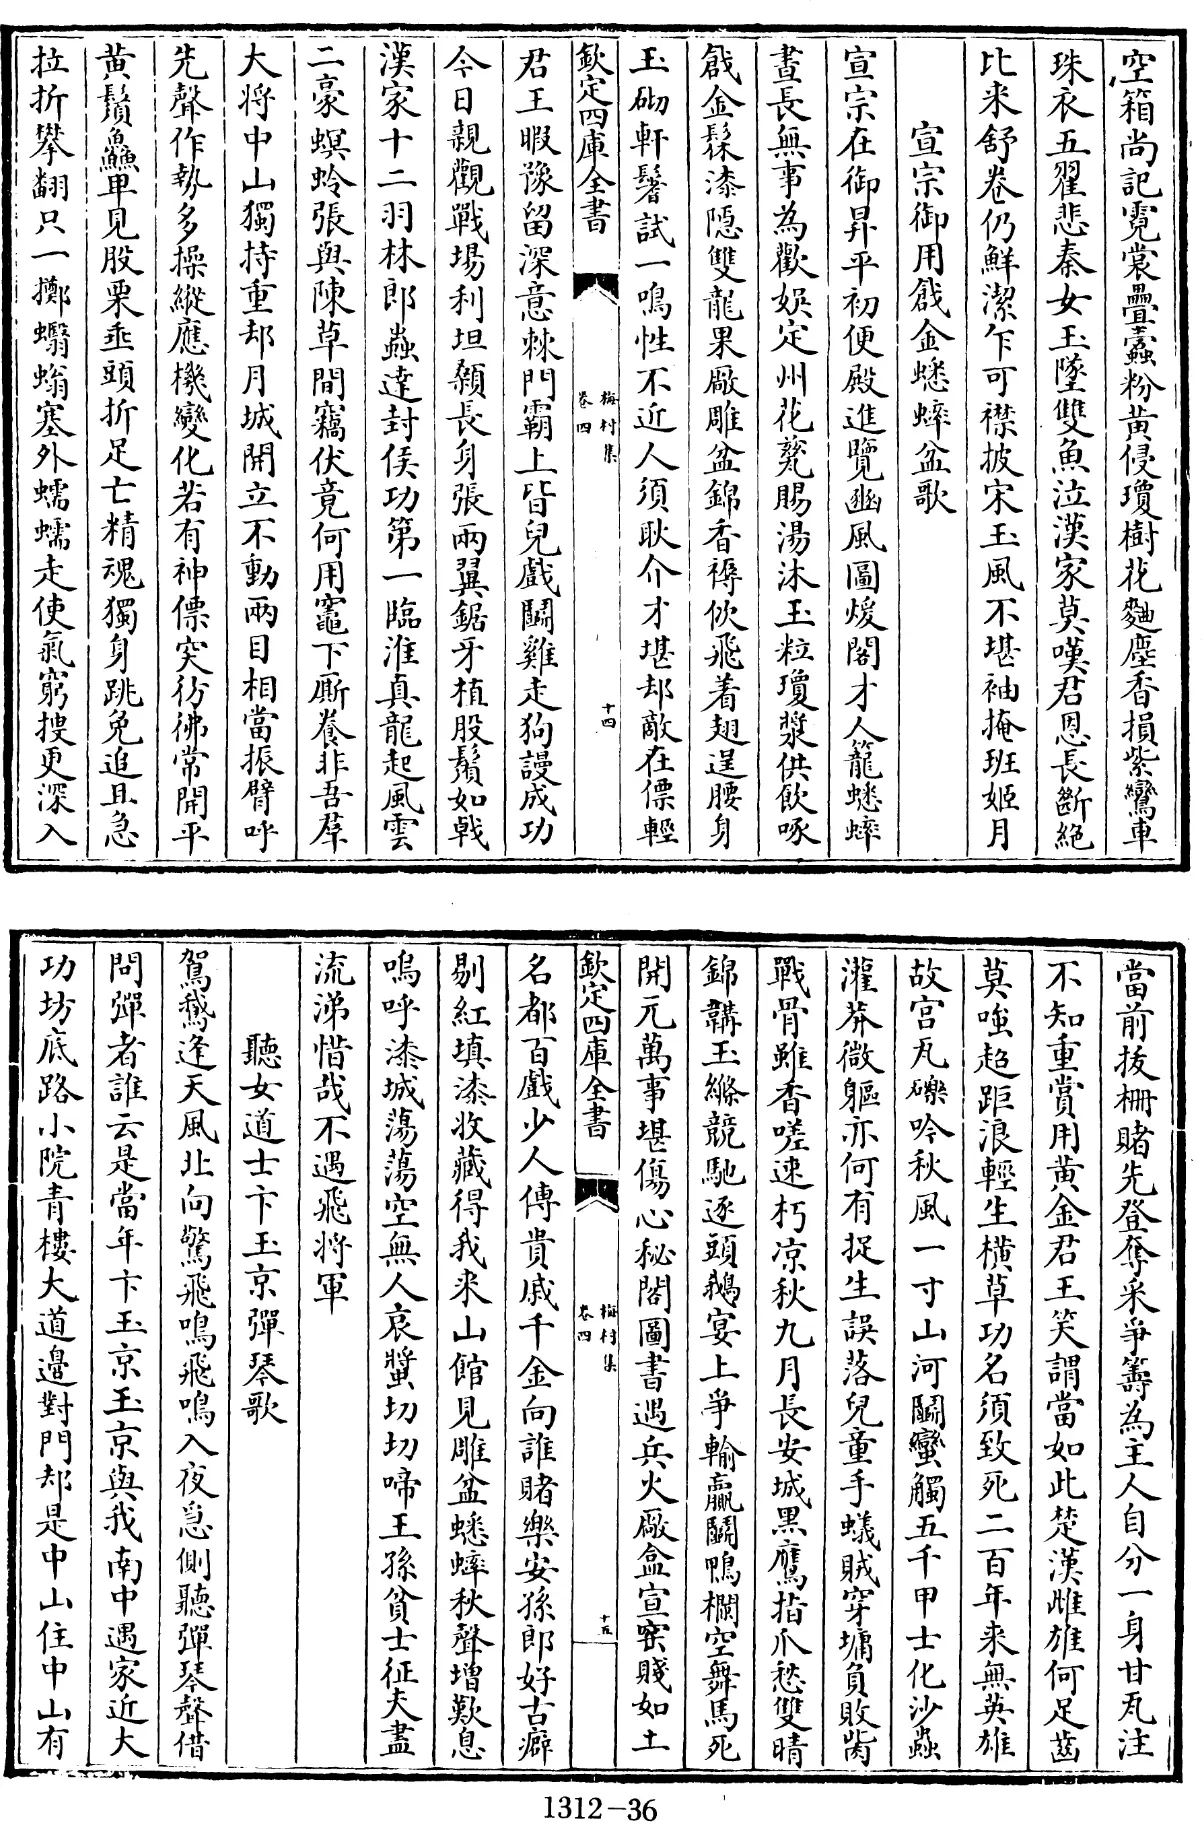 空箱尚記霓裳疊蠹粉黄侵瓊樹花麴塵香損紫鸞車
珠衣五翟悲秦女玉墜雙魚泣漢家莫嘆君恩長斷絶
比来舒卷仍鮮潔乍可襟披宋玉風不堪袖掩班姬月
宣宗御用戧金蟋蟀盆歌
宣宗在御昇平初便殿進覽豳風圖煖閣才人籠蟋蟀
晝長無事為歡娱定州花甆賜湯沐玉粒瓊漿供飲啄
戧金髹漆隱雙龍果厰雕盆錦香褥佽飛着翅逞腰身
玉砌軒鬐試一鳴性不近人須耿介才堪却敵在僄輕
欽定四庫全書
梅村集
卷四
十四
君王暇豫留深意棘門霸上皆兒戲鬭雞走狗謾成功
今日親觀戰場利坦顙長身張兩翼鋸牙植股鬚如戟
漢家十二羽林郎蟲達封侯功第一臨淮真龍起風雲
二豪螟蛉張與陳草間竊伏竟何用竈下厮養非吾羣
大将中山獨持重却月城開立不動兩目相當振臂呼
先聲作勢多操縱應機變化若有神僄突彷彿常開平
黄鬚鱻卑見股栗垂頭折足亡精魂獨身跳免追且急
拉折攀翻只一擲蠮螉塞外蠕蠕走使氣窮搜更深入
當前拔柵賭先登奪采爭籌為主人自分一身甘瓦注
不知重賞用黄金君王笑謂當如此楚漢雌雄何足齒
莫嗤超距浪輕生横草功名須致死二百年来無英雄
故宫瓦礫吟秋風一寸山河鬭蠻觸五千甲士化沙蟲
灌莽微軀亦何有捉生誤落兒童手蟻賊穿墉負敗胔
戰骨雖香嗟速朽凉秋九月長安城黑鷹指爪愁雙睛
錦韝玉縧競馳逐頭鵝宴上爭輸贏鬭鴨欄空舞馬死
開元萬事堪傷心秘閣圖書遇兵火厰盒宣窯賤如土
欽定四庫全書
梅村集
卷四
十五
名都百戲少人傳貴戚千金向誰賭樂安孫郎好古癖
剔紅填漆收藏得我来山館見雕盆蟋蟀秋聲增歎息
嗚呼漆城蕩蕩空無人哀螿切切啼王孫貧士征夫盡
流涕惜哉不遇飛将軍
聽女道士卞玉京彈琴歌
鴐鵝逢天風北向驚飛鳴飛鳴入夜急側聽彈琴聲借
問彈者誰云是當年卞玉京玉京與我南中遇家近大
功坊底路小院青樓大道邊對門却是中山住中山有
1312-36